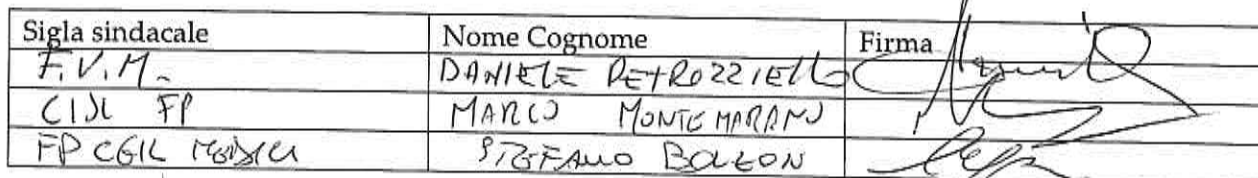 Sigla sindacale Nome Cognome Firma
F.V.M. DANIELE PETROZZIELLO
CISL FP MARCO MONTEMARANO
FP CGIL MEDICI STEFANO BOLZON